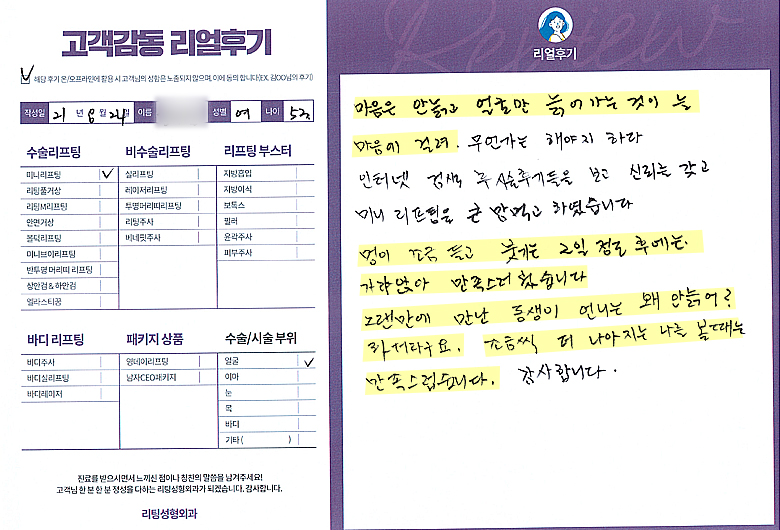 고객감동 리얼후기
해당 후기 온/오프라인에 활용 시 고객님의 성함은 노출되지 않으며, 이에 동의 합니다(EX. 김OO님의 후기)
작성일 21 년 8 월 24 일 이름 성별 여 나이 53
수술리프팅
미니리프팅
리팅풀거상
리팅M리프팅
안면거상
올덕리프팅
미니브이리프팅
반투명 머리띠 리프팅
상안검 & 하안검
엘라스티꿈
비수술리프팅
실리프팅
레이저리프팅
투명머리띠리프팅
리팅주사
버네핏주사
리프팅 부스터
지방흡입
지방이식
보톡스
필러
윤곽주사
피부주사
바디 리프팅
바디주사
바디실리프팅
바디레이저
패키지 상품
영네이리프팅
남자CEO패키지
수술/시술 부위
얼굴
이마
눈
목
바디
기타 ( )
진료를 받으시면서 느끼신 점이나 칭찬의 말씀을 남겨주세요!
고객님 한 분 한 분 정성을 다하는 리팅성형외과가 되겠습니다. 감사합니다.
리팅성형외과
Review
리얼후기
마음은 안늙고 얼굴만 늙어가는 것이 늘
마음에 걸려. 무언가는 해야지 하다
인터넷 검색 후 수술후기들을 보고 신뢰를 갖고
미니 리프팅을 큰 맘먹고 하였습니다
멍이 조금 들고 붓기는 2일 정도 후에는
가라앉아 만족스러웠습니다
오랜만에 만난 동생이 언니는 왜 안늙어?
하더라구요. 조금씩 더 나아지는 나를 볼때는
만족스럽습니다. 감사합니다.